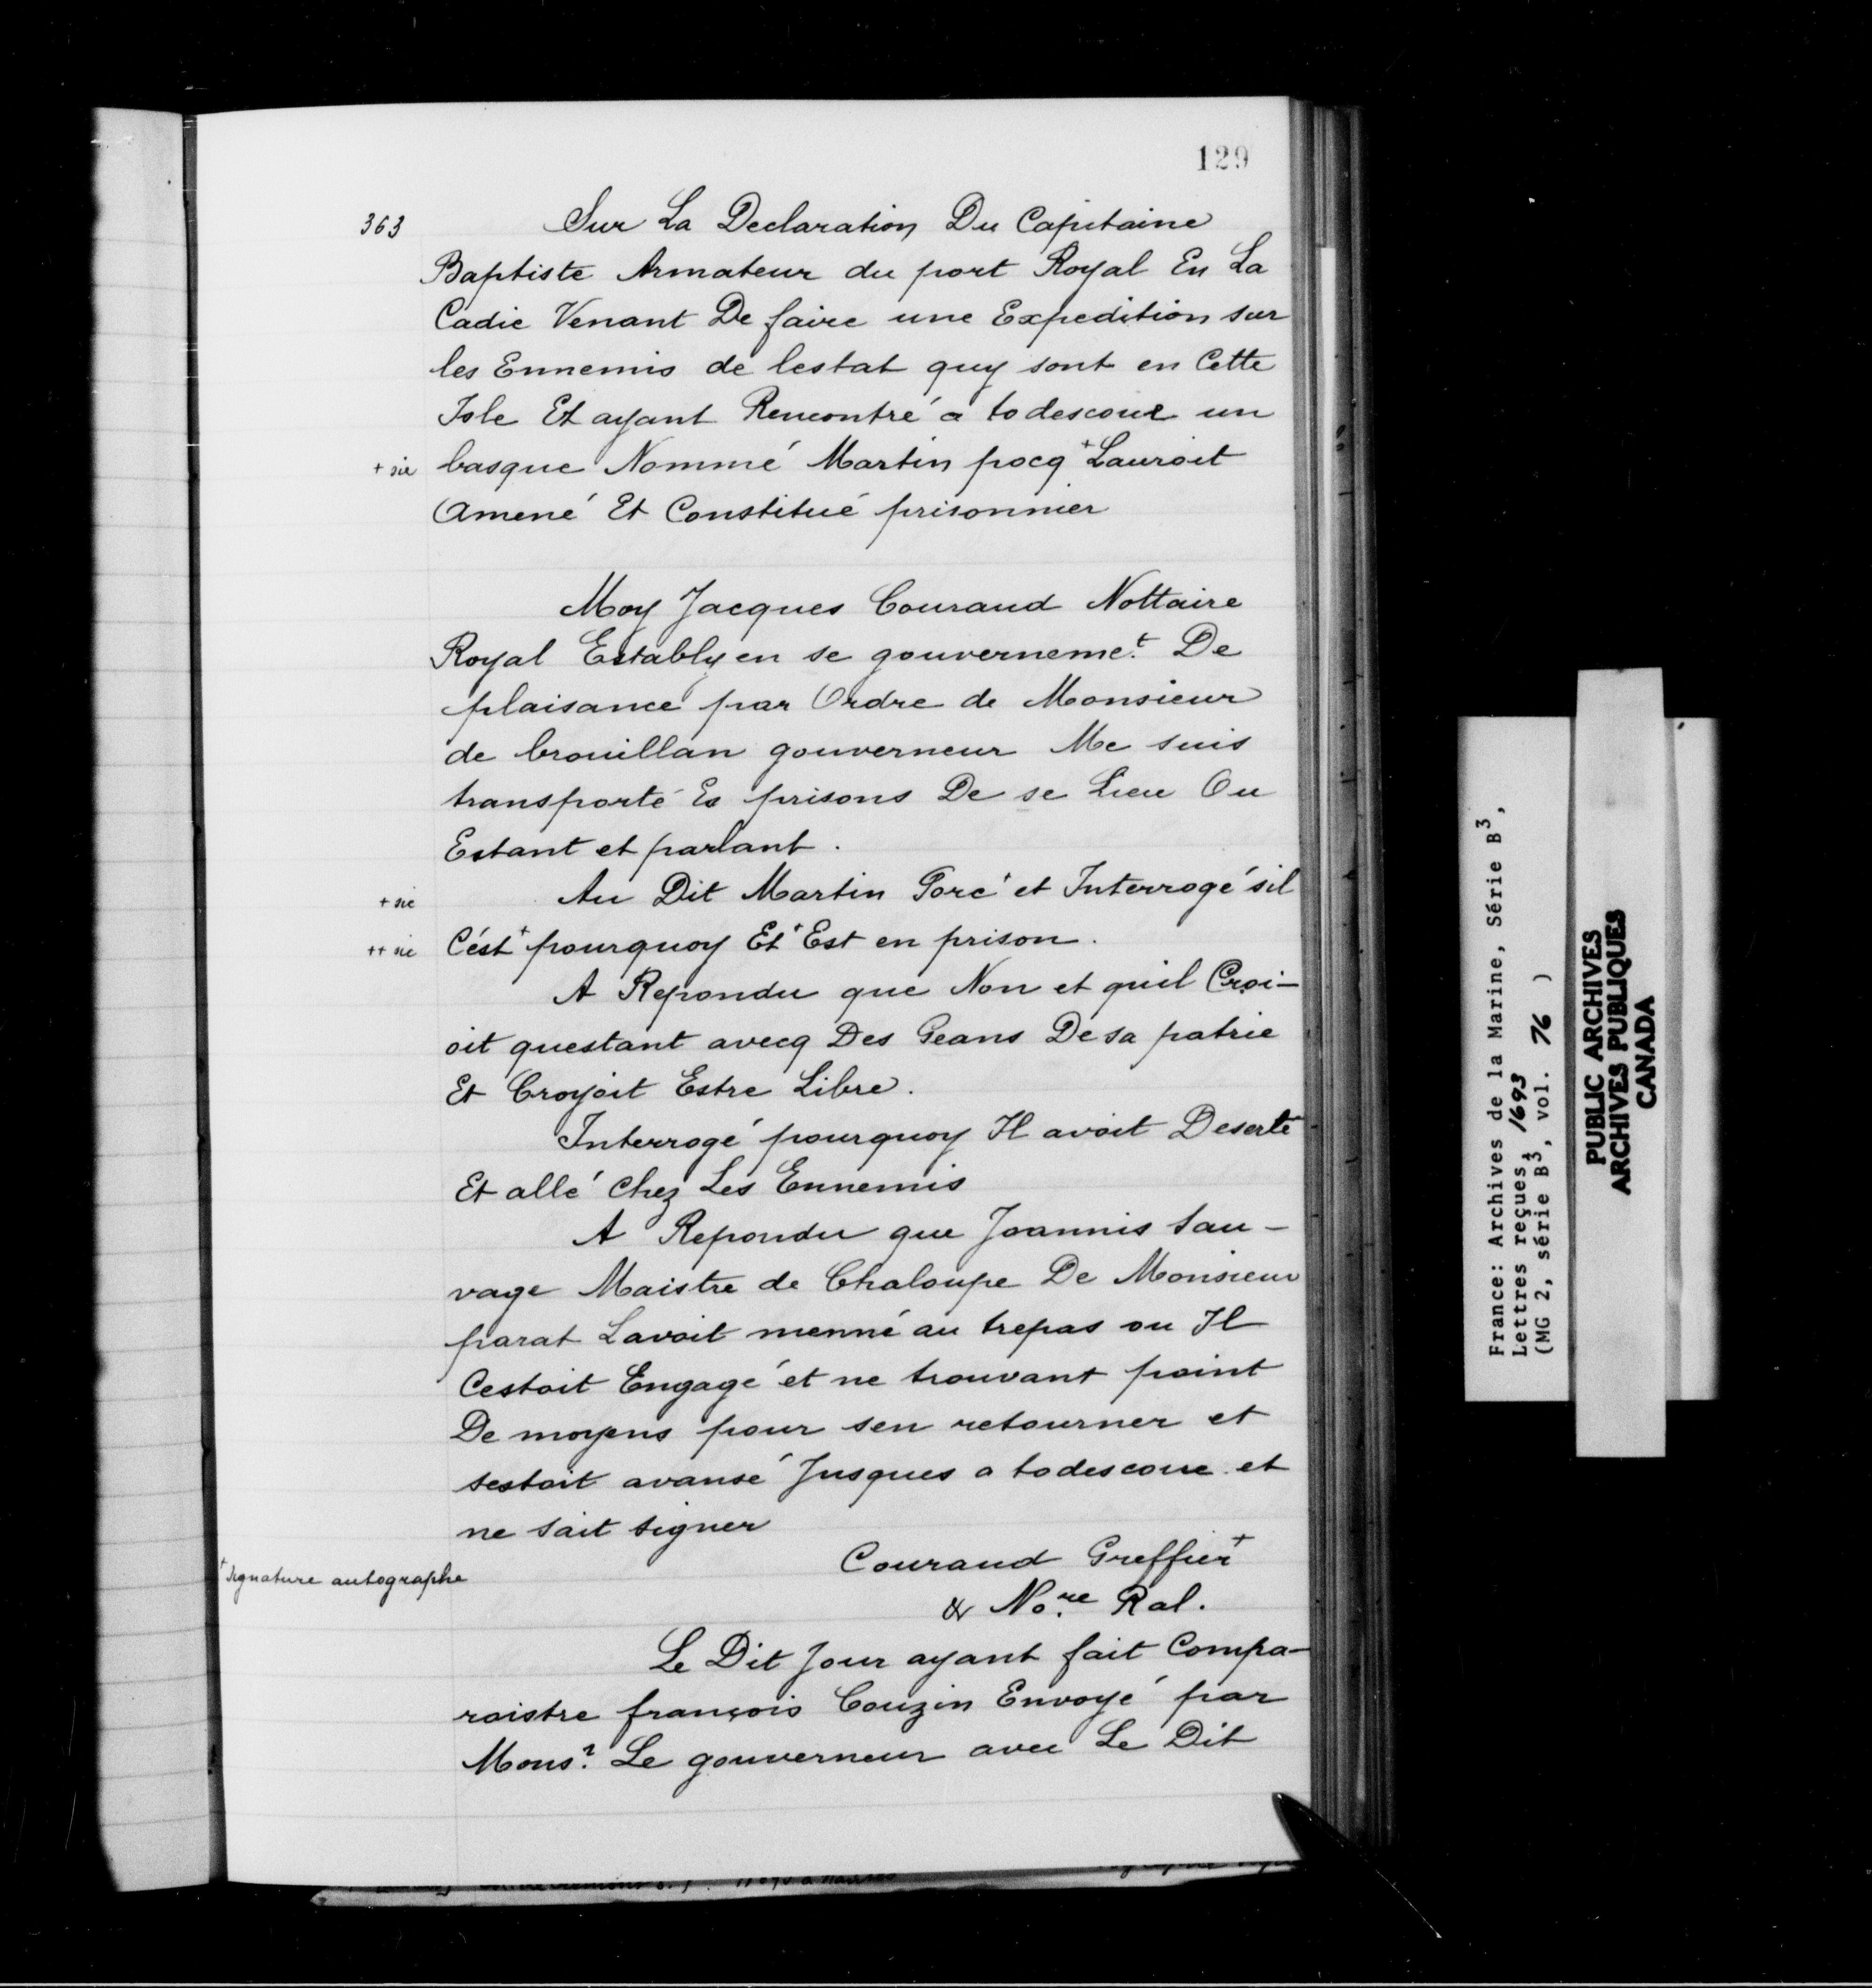 129
363
Sur La Declaration Du Capitaine
Baptiste Armateur du port Royal En La
Cadie Venant De faire une Expedition sur
les Ennemis de lestat quy sont en Cette
Isle Et ayant Rencontré a todescour un
+ sic basque Nommé Martin pocq + Lauroit
Amené Et Constitué prisonnier
Moy Jacques Couraud Nottaire
Royal Establyen se gouverneme.t De
plaisance par Ordre de Monsieur
de brouillan gouverneur Me suis
transporté Es prisons De se Lieu Ou
Estant et parlant.
+ sic Au Dit Martin Porc et Interrogé sil
++ sic Cést + pourquoy Et + Est en prison.
A Repondu que Non et quil Croi-
oit questant avecq Des Geans De sa patrie
Et Croyoit Estre Libre.
Interrogé pourquoy Il avoit Deserté
Et allé Chez Les Ennemis
A Repondu que Joannis Sau-
vage Maistre de Chaloupe De Monsieur
parat Lavoit menné au trepas ou Il
Cestoit Engagé et ne trouvant point
De moyens pour sen retourner et
sestoit avansé Jusques a todescoue et
ne sait signer
Couraud Greffier +
+ signature autographe
& No.re Ral.
Le Dit Jour ayant fait Compa-
roistre françois Couzin Envoyé par
Mons.r Le gouverneur avec Le Dit
France: Archives de la Marine, Série B3,
Lettres reçues, 1693
(MG 2, série B3, vol. 76 )
PUBLIC ARCHIVES
ARCHIVES PUBLIQUES
CANADA